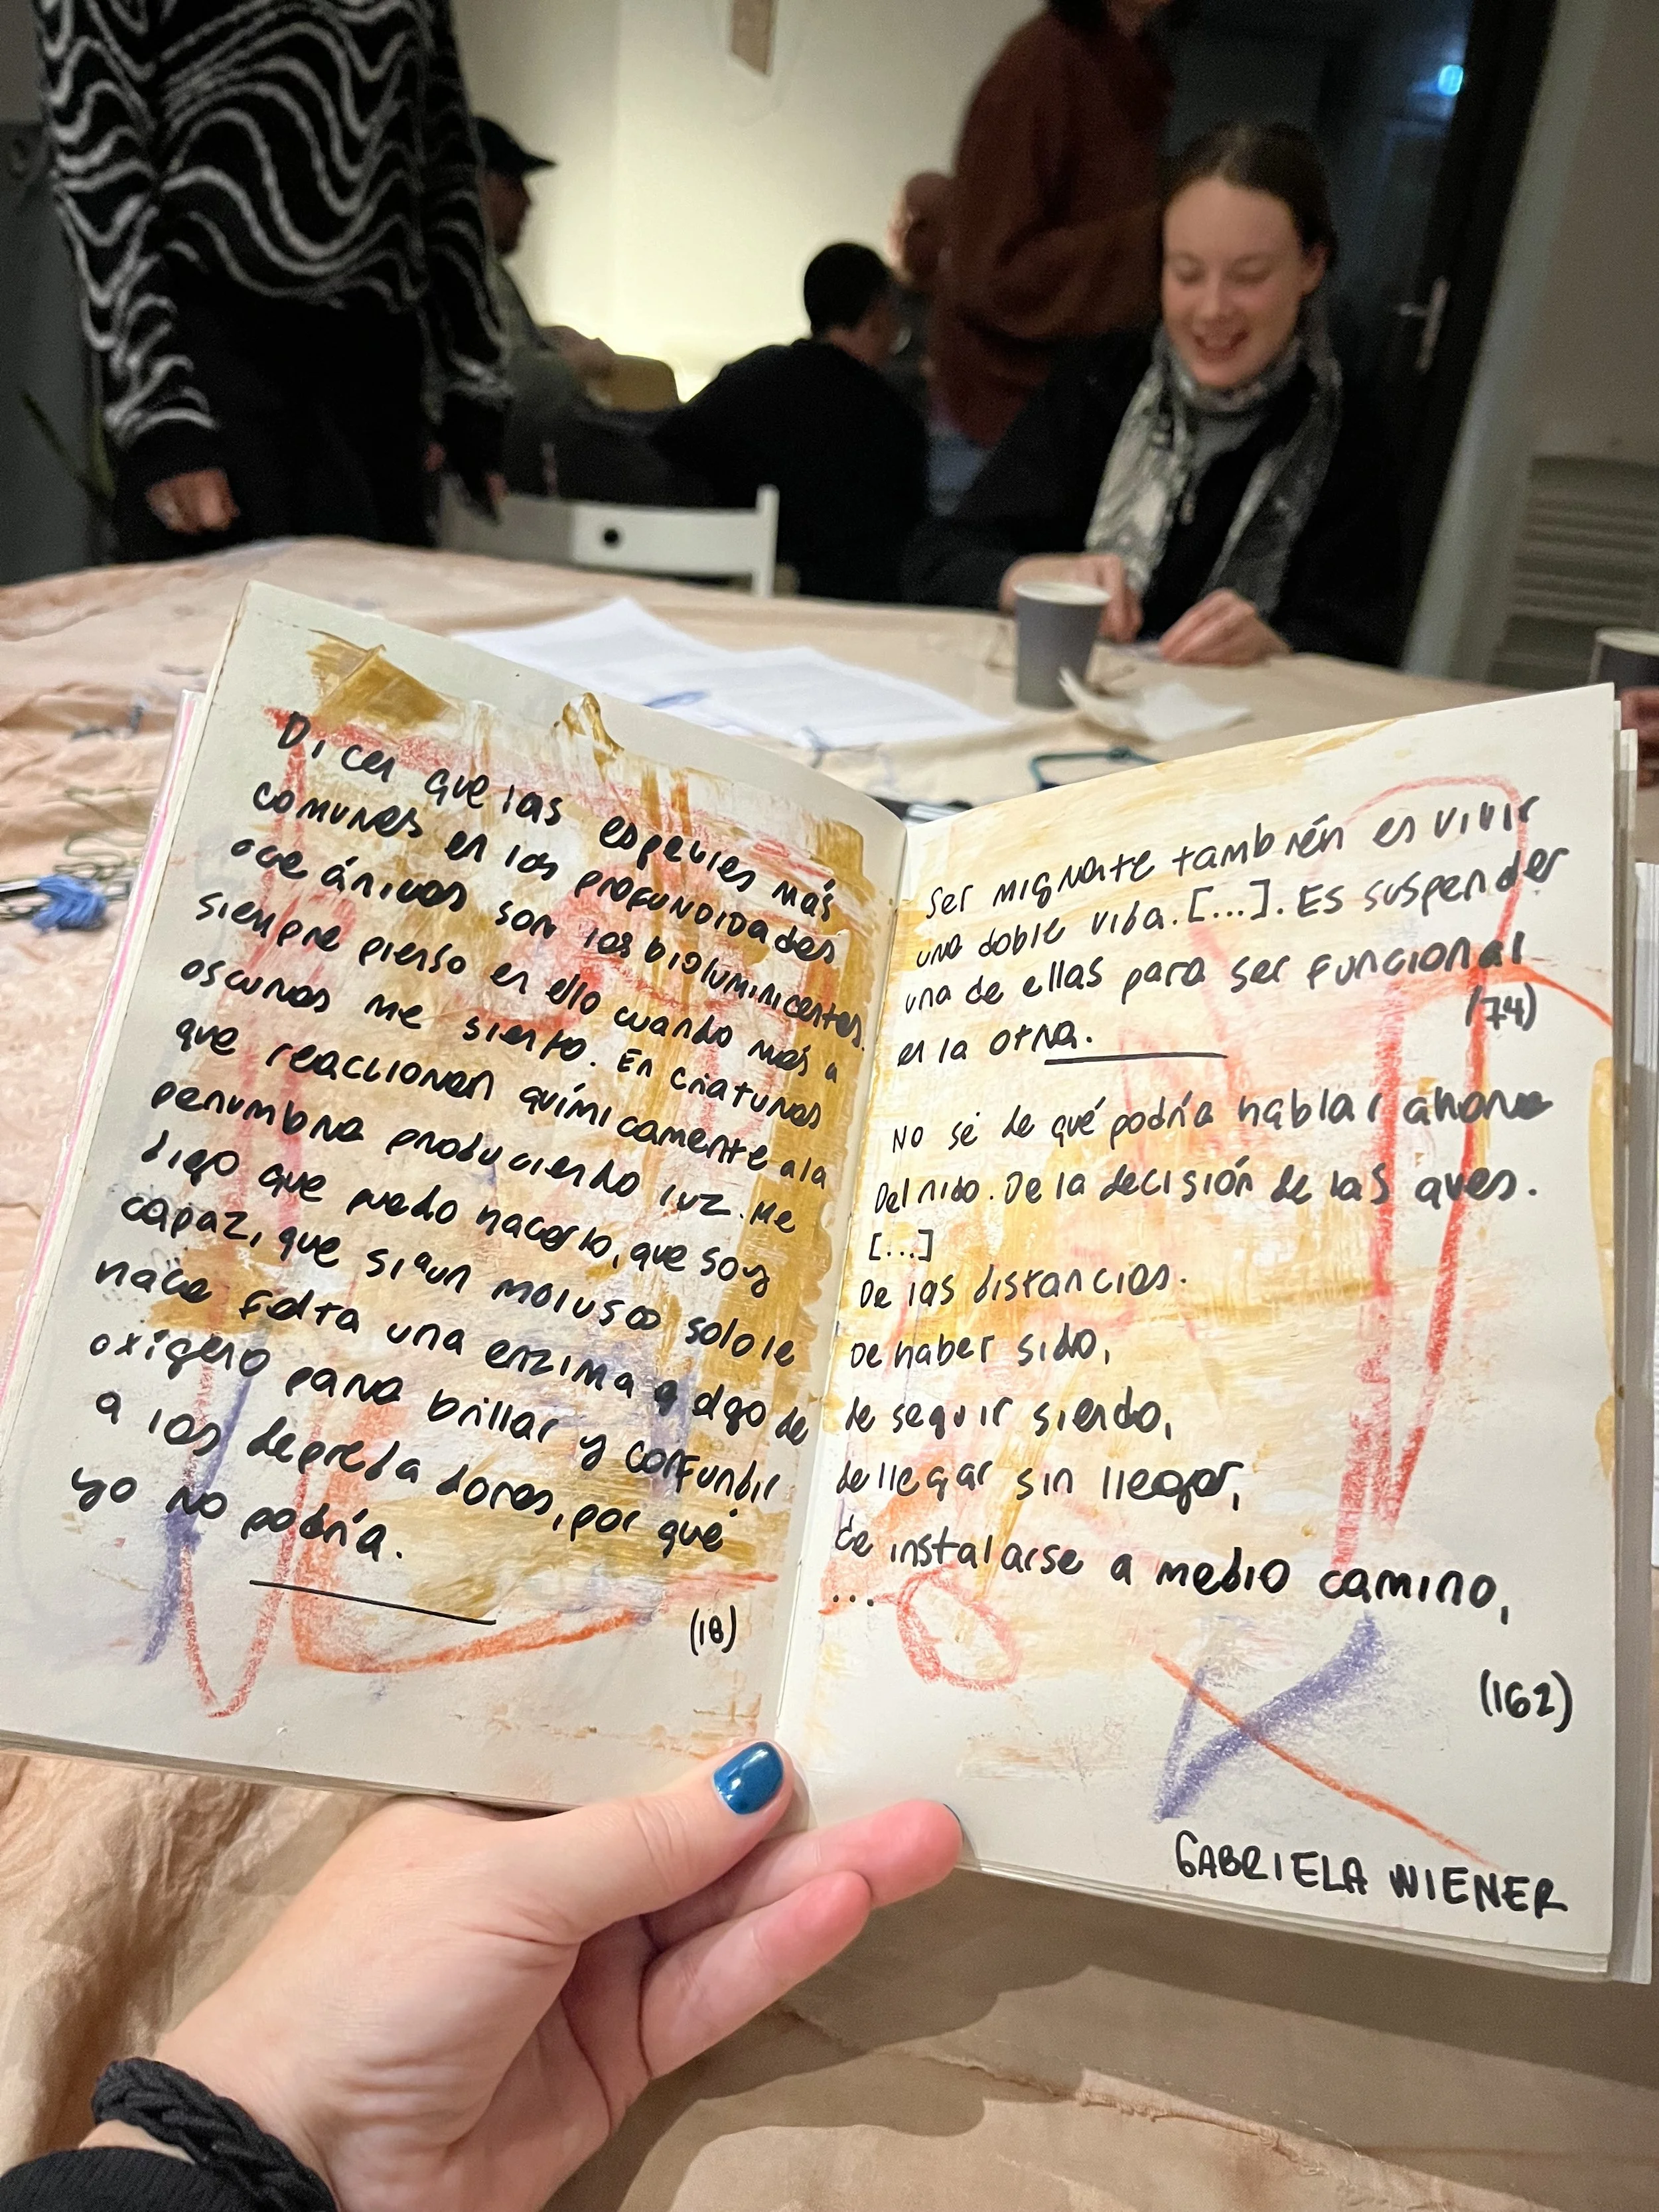 Dicen que las especies más
comunes en las profundidades
oceánicas son las bioluminicentes.
siempre pienso en ello cuando más a
oscuras me siento. En criaturas
que reaccionan químicamente a la
penumbra produciendo luz. Me
digo que puedo hacerlo, que soy
capaz, que si a un molusco solo le
hace falta una enzima y algo de
oxígeno para brillar y confundir
a los depredadores, por qué
yo no podría.
(18)
Ser migrante también es vivir
una doble vida. [...]. Es suspender
una de ellas para ser funcional
en la otra.
(74)
No sé de qué podría hablar ahora
Del nido. De la decisión de las aves.
[...]
De las distancias.
De haber sido,
de seguir siendo,
de llegar sin llegar,
de instalarse a medio camino,
...
(162)
GABRIELA WIENER